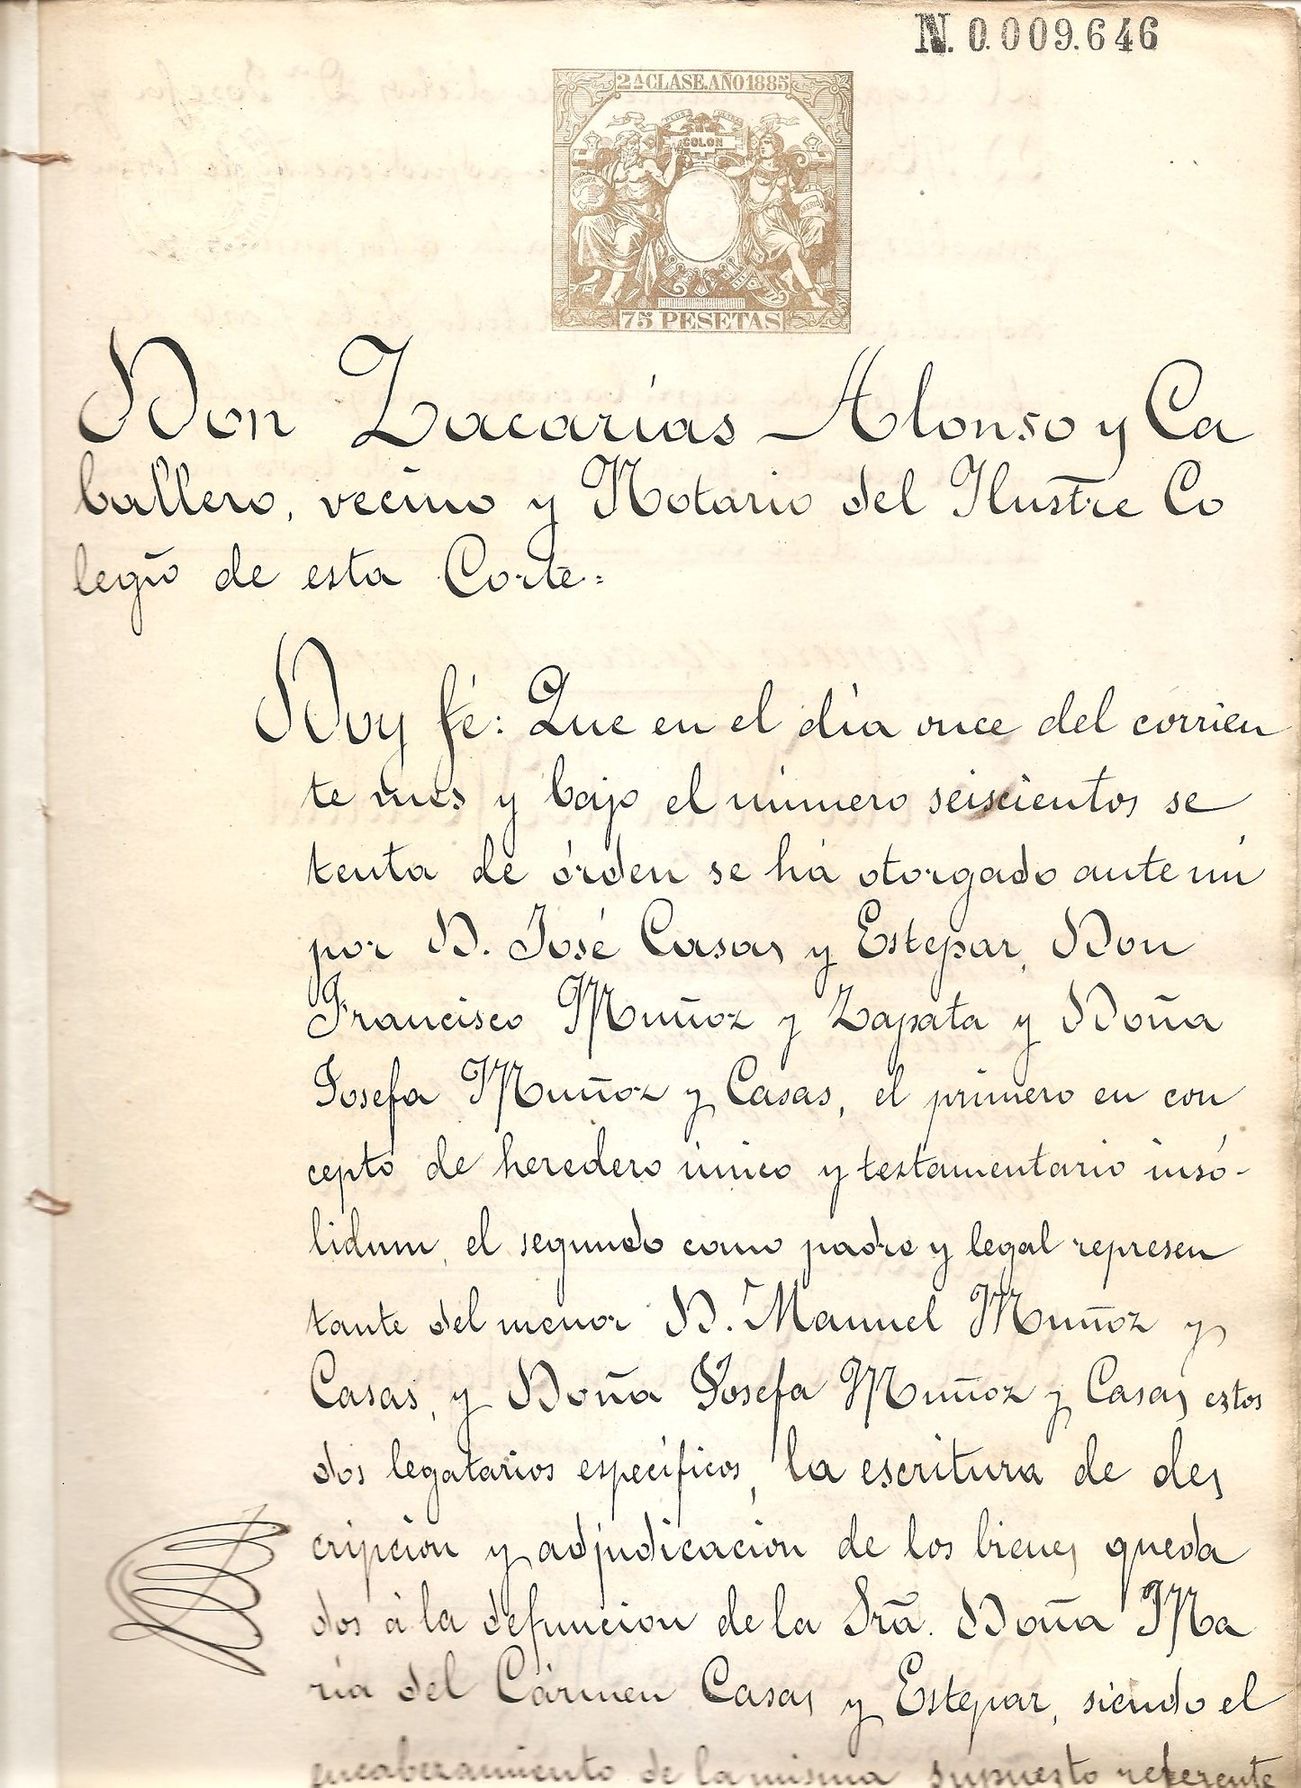 N. 0.009.646
2ª CLASE. AÑO 1885
COLON
EUROPA
75 PESETAS
Don Zacarías Alonso y Ca
ballero, vecino y Notario del Ilustre Co
legio de esta Corte=
Doy fé: Que en el día once del corrien
te mes y bajo el número seiscientos se
tenta de órden se há otorgado ante mí
por D. José Casas y Estepar, Don
Francisco Muñoz y Zapata y Doña
Josefa Muñoz y Casas, el primero en con
cepto de heredero único y testamentario insó-
lidum, el segundo como padre y legal represen
tante del menor D. Manuel Muñoz y
Casas, y Doña Josefa Muñoz y Casas, estos
dos legatarios específicos, la escritura de des
cripción y adjudicación de los bienes queda
dos á la defuncion de la Srã. Doña Ma
ría del Cármen Casas y Estepar, siendo el
encabezamiento de la misma supuesto referente